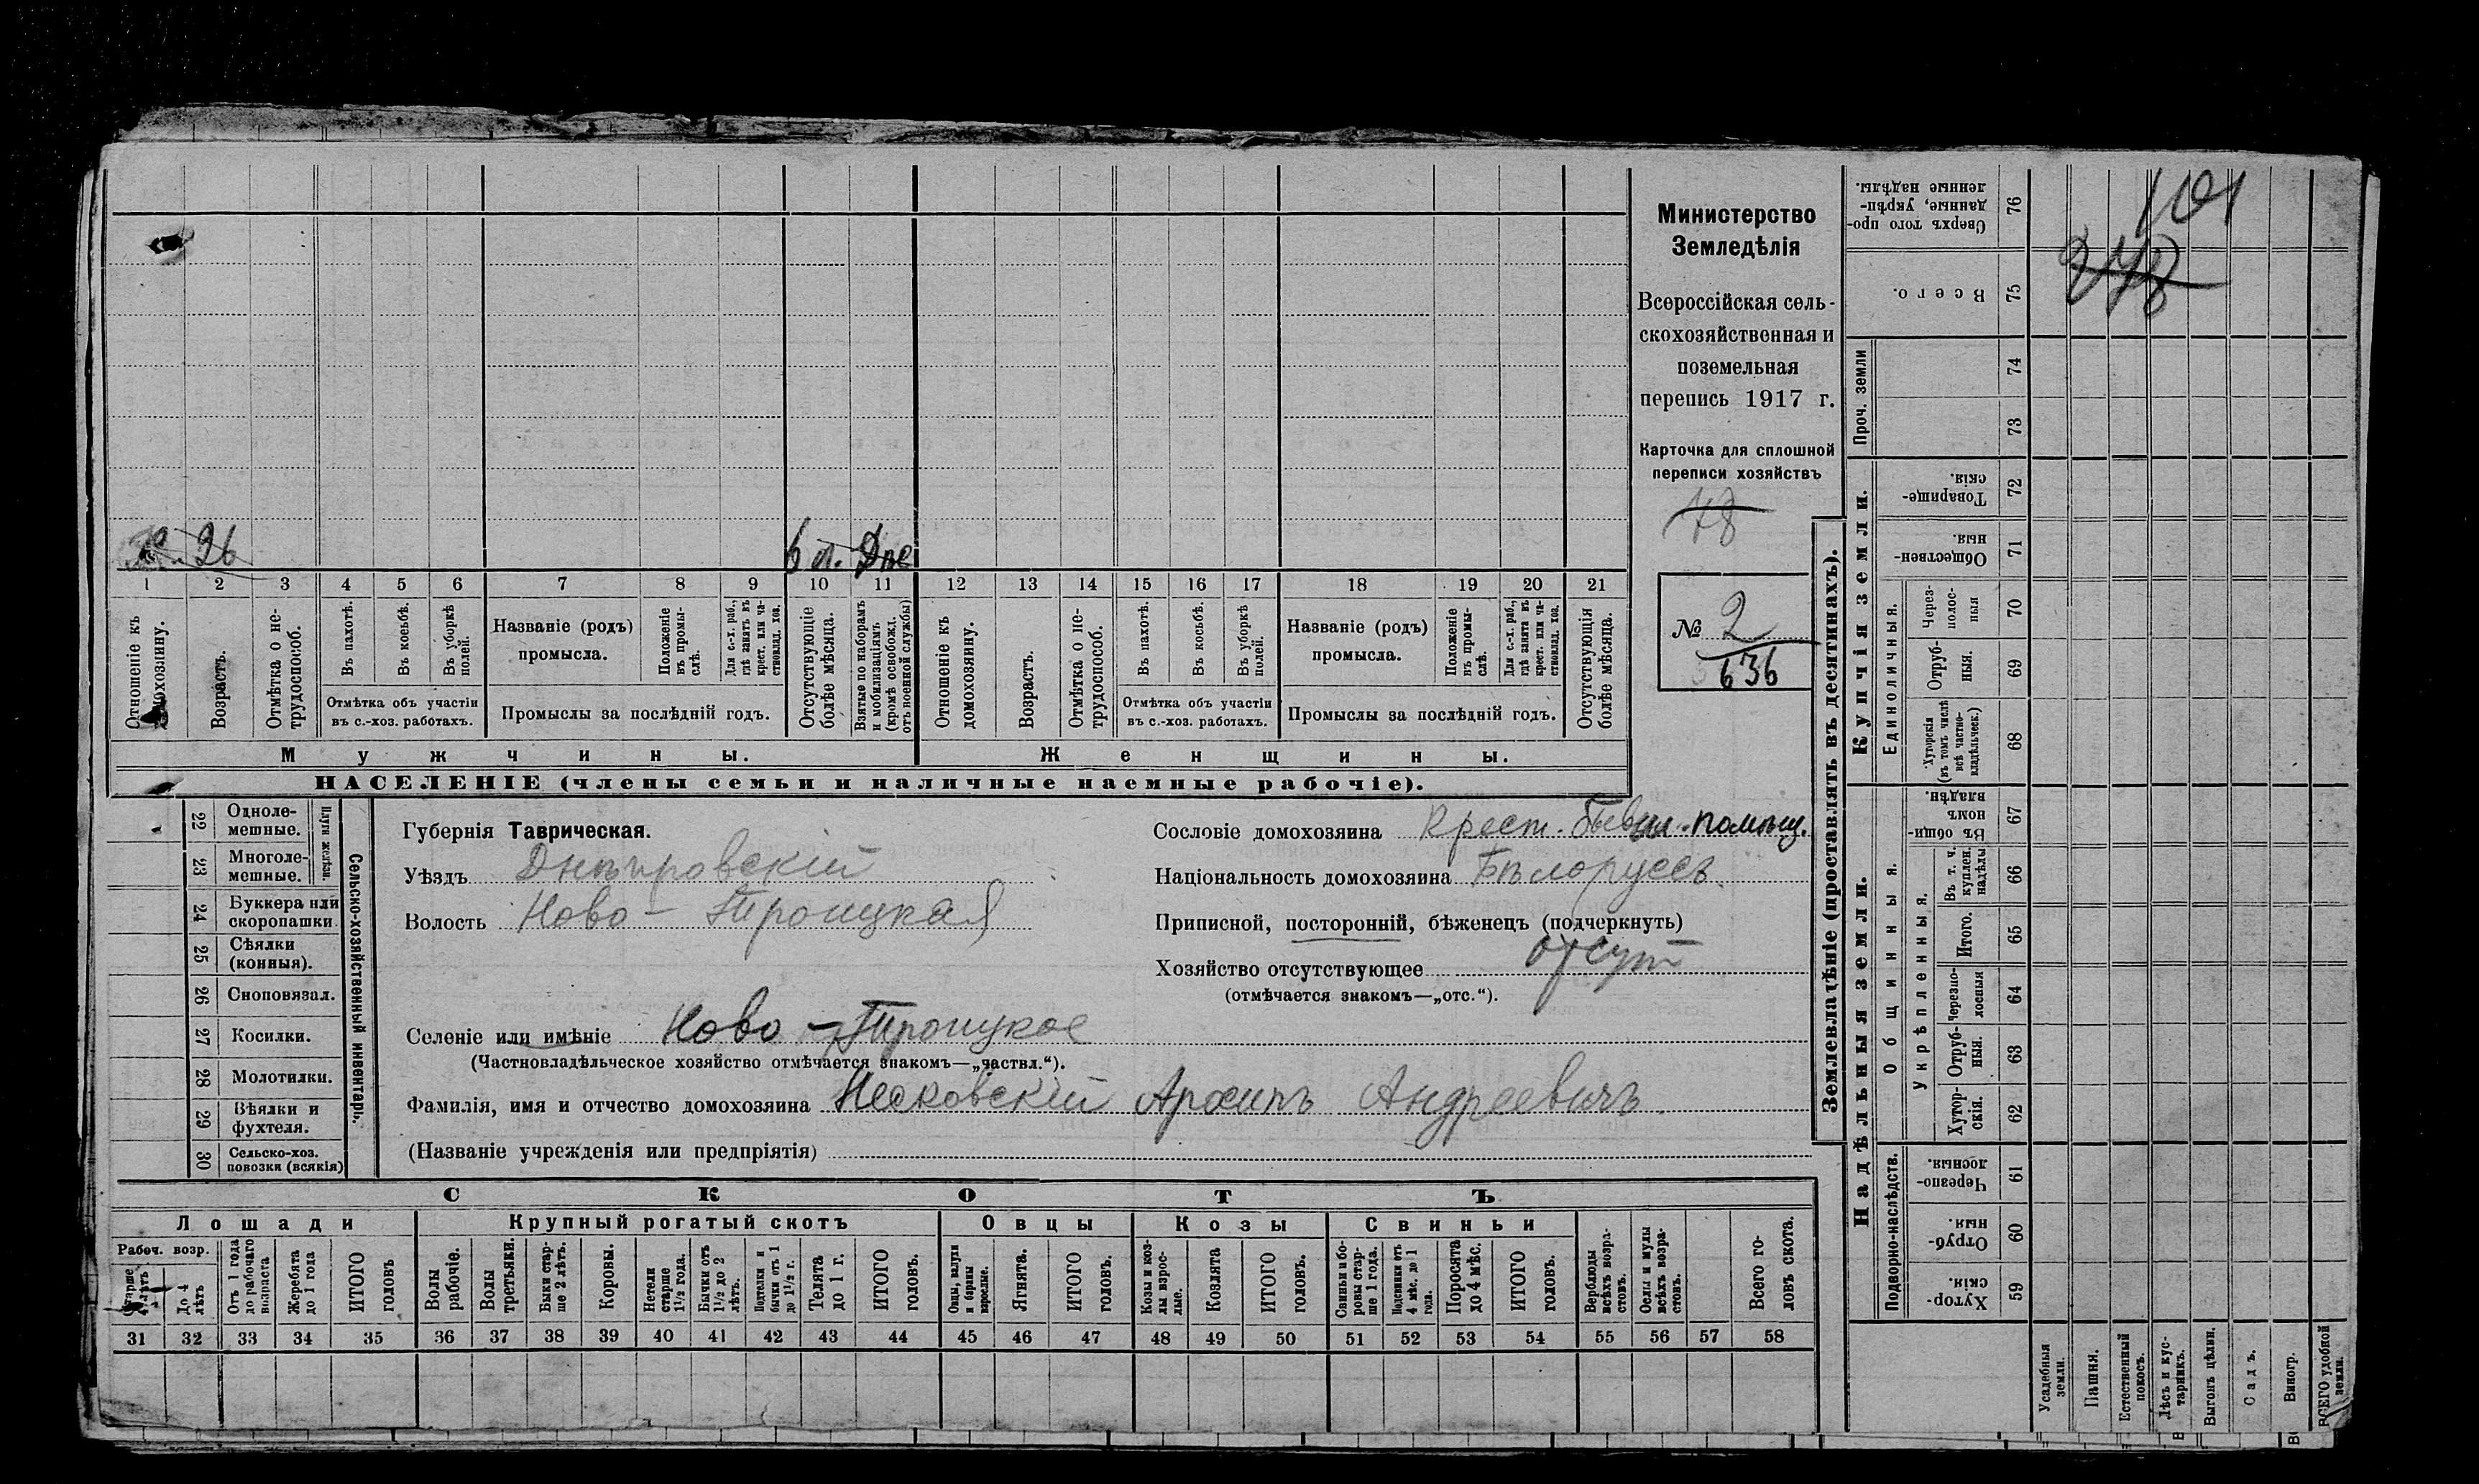 101
248
Министерство
Земледѣлія
Всероссійская сель-
скохозяйственная и
поземельная
перепись 1917 г.
Карточка для сплошной
переписи хозяйствъ
78
№ 2
636
26
1 2 3 4 5 6 7 8 9 10 11 12 13 14 15 16 17 18 19 20 21
Отношеніе къ домохозяину.
Возрастъ.
Отмѣтка о не-трудоспособ.
Въ пахотѣ.
Въ косьбѣ.
Въ уборкѣ полей.
Отмѣтка объ участіи
въ с.-хоз. работахъ.
Названіе (родъ)
промысла.
Положеніе въ промы-слѣ.
Для с.-х. раб., гдѣ занятъ въ крест. или ча-стновлад. хоз.
Промыслы за послѣдній годъ.
Отсутствующіе болѣе мѣсяца.
Взятые по наборамъ и мобилизаціямъ (кромѣ освобожд. отъ военной службы)
Отношеніе къ домохозяину.
Возрастъ.
Отмѣтка о не-трудоспособ.
Въ пахотѣ.
Въ косьбѣ.
Въ уборкѣ полей.
Отмѣтка объ участіи
въ с.-хоз. работахъ.
Названіе (родъ)
промысла.
Положеніе въ промы-слѣ.
Для с.-х. раб., гдѣ занята въ крест. или ча-стновлад. хоз.
Промыслы за послѣдній годъ.
Отсутствующія болѣе мѣсяца.
Мужчины.
Женщины.
НАСЕЛЕНІЕ (члены семьи и наличные наемные рабочіе).
22 Одноле-мешные.
23 Многоле-мешные.
Плуги желѣзн.
24 Буккера или скоропашки.
25 Сѣялки (конныя).
26 Сноповязал.
27 Косилки.
28 Молотилки.
29 Вѣялки и фухтеля.
30 Сельско-хоз. повозки (всякія)
Сельско-хозяйственный инвентарь.
Губернія Таврическая.
Уѣздъ Днѣпровскій
Волость Ново-Троицкая
Сословіе домохозяина Крест. бывш. помѣщ.
Національность домохозяина Бѣлоруссъ.
Приписной, посторонній, бѣженецъ (подчеркнуть)
Хозяйство отсутствующее отсут
(отмѣчается знакомъ—„отс.“).
Селеніе или имѣніе Ново-Троицкое
(Частновладѣльческое хозяйство отмѣчается знакомъ—„частвл.“).
Фамилія, имя и отчество домохозяина Несковскій Архипъ Андреевичъ.
(Названіе учрежденія или предпріятія)
СКОТЪ
Лошади
Крупный рогатый скотъ
Овцы
Козы
Свиньи
Рабоч. возр.
Старше 4 лѣтъ
До 4 лѣтъ
Отъ 1 года до рабочаго возраста
Жеребята до 1 года
ИТОГО головъ
Волы рабочіе.
Волы третьяки.
Быки стар-ше 2 лѣтъ.
Коровы.
Нетели старше 1½ года.
Бычки отъ 1½ до 2 лѣтъ.
Подтелки и бычки отъ 1 до 1½ г.
Телята до 1 г.
ИТОГО головъ.
Овцы, валухи и бараны взрослые.
Ягнята.
ИТОГО головъ.
Козы и коз-лы взрос-лые.
Козлята
ИТОГО головъ.
Свиньи и бо-ровы стар-ше 1 года.
Подсвинки отъ 4 мѣс. до 1 года.
Поросята до 4 мѣс.
ИТОГО головъ.
Верблюды всѣхъ возра-стовъ.
Ослы и мулы всѣхъ возра-стовъ.
Всего го-ловъ скота.
31 32 33 34 35 36 37 38 39 40 41 42 43 44 45 46 47 48 49 50 51 52 53 54 55 56 57 58
Землевладѣніе (проставлять въ десятинахъ).
Надѣльныя земли.
Купчія земли.
Проч. земли
Подворно-наслѣдств.
Общинныя.
Укрѣпленныя.
Единоличныя.
Сверхъ того про-данные, укрѣп-ленные надѣлы. 76
Всего. 75
74
73
Товарище-скія. 72
Обществен-ныя. 71
Через-полос-ныя 70
Отруб-ныя. 69
Хуторскія (въ томъ числѣ всѣ частно-владѣльческ.) 68
Въ общин-номъ владѣн. 67
Въ т. ч. куплен. надѣлы 66
Итого. 65
Черезпо-лосныя 64
Отруб-ныя. 63
Хутор-скія. 62
Черезпо-лосныя. 61
Отруб-ныя. 60
Хутор-скія. 59
Усадебныя земли.
Пашня.
Естественный покосъ.
Лѣсъ и кус-тарникъ.
Выгонъ цѣлин.
Садъ.
Виногр.
ВСЕГО удобной земли.